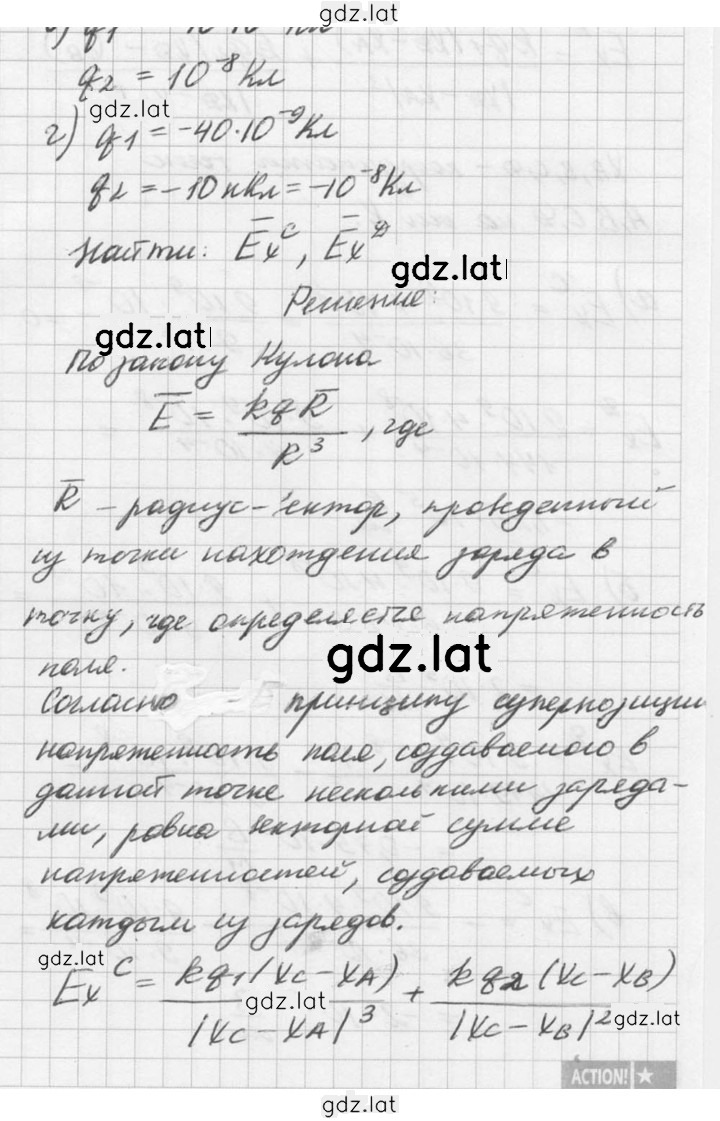 gdz.lat
q₂ = 10⁻⁸ Кл
gdz.lat
г) q₁ = -40·10⁻⁹ Кл
q₂ = -10 нКл = -10⁻⁸ Кл
Найти: E̅ₓᶜ, E̅ₓᴰ
gdz.lat
Решение:
gdz.lat
По закону Кулона
E̅ = kqR̅ / R³, где
R̅ - радиус-вектор, проведенный
из точки нахождения заряда в
точку, где определяется напряженность
gdz.lat
поля.
Согласно принципу суперпозиции
напряженность поля, создаваемого в
данной точке несколькими заряда-
ми, равна векторной сумме
напряженностей, создаваемых
каждым из зарядов.
gdz.lat
Eₓᶜ = kq₁(xC - xA) / |xC - xA|³ + kq₂(xC - xB) / |xC - xB|²
gdz.lat
gdz.lat
ACTION! ★
gdz.lat